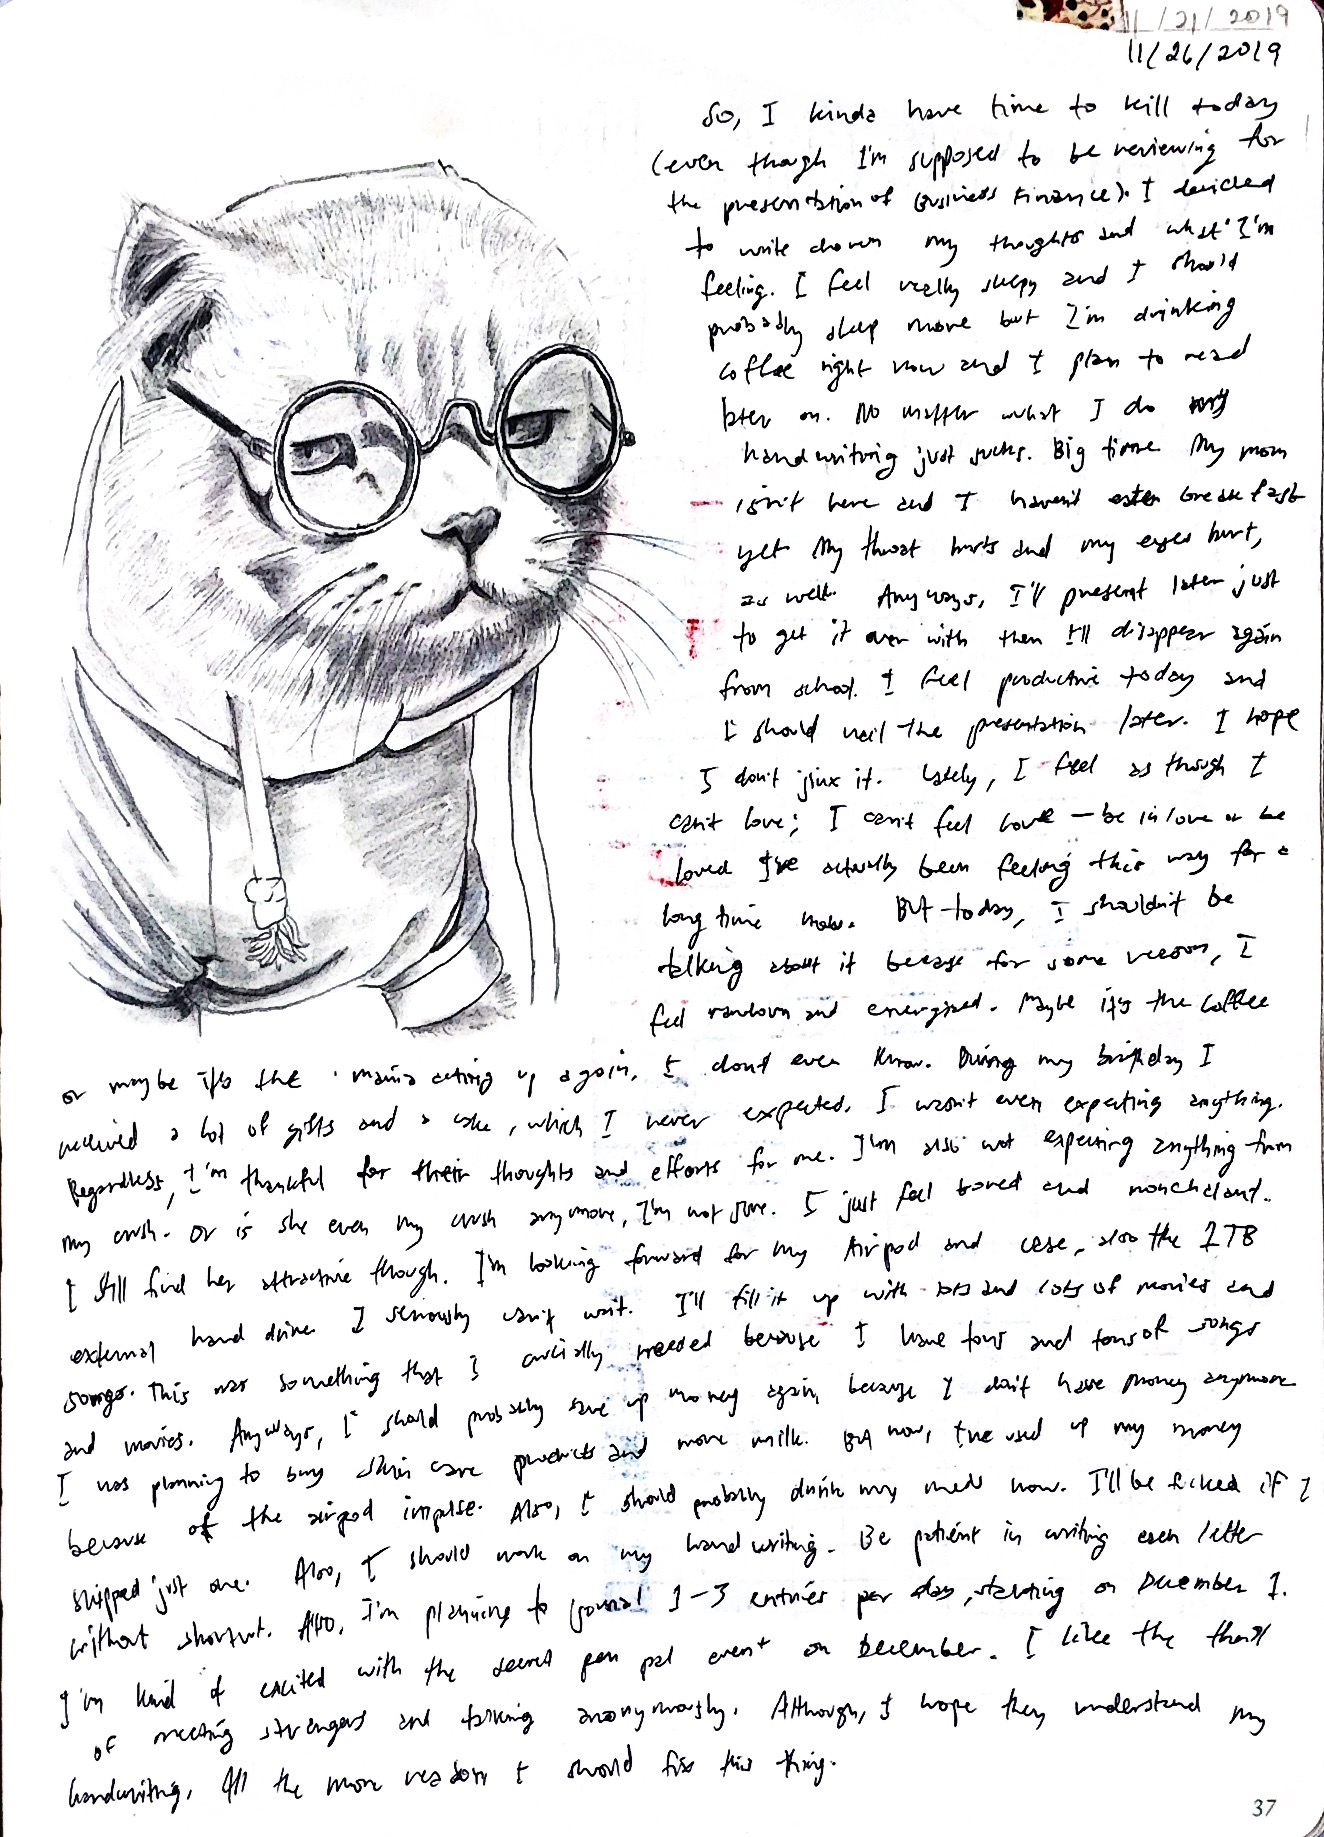 11/21/2019
11/26/2019
So, I kinda have time to kill today
(even though I'm supposed to be reviewing for
the presentation of Business Finance). I decided
to write down my thoughts and what I'm
feeling. I feel really sleepy and I should
probably sleep more but I'm drinking
coffee right now and I plan to read
later on. No matter what I do my
handwriting just sucks. Big time. My mom
isn't here and I haven't eaten breakfast
yet. My throat hurts and my eyes hurt,
as well. Anyways, I'll present later just
to get it over with then I'll disappear again
from school. I feel productive today and
I should nail the presentation later. I hope
I don't jinx it. Lately, I feel as though I
can't love; I can't feel love — be in love or be
loved. I've actually been feeling this way for a
long time now. But today, I shouldn't be
talking about it because for some reason, I
feel random and energized. Maybe it's the coffee
or maybe it's the mania acting up again. I don't even know. During my birthday I
received a lot of gifts and a cake, which I never expected. I wasn't even expecting anything.
Regardless, I'm thankful for their thoughts and efforts for me. I'm also not expecting anything from
my crush. Or is she even my crush anymore, I'm not sure. I just feel bored and nonchalant.
I still find her attractive though. I'm looking forward for my Airpod and case, also the 1TB
external hard drive. I seriously can't wait. I'll fill it up with lots and lots of movies and
songs. This was something that I crucially needed because I have tons and tons of songs
and movies. Anyways, I should probably save up money again, because I don't have money anymore.
I was planning to buy skin care products and more milk. But now, I've used up my money
because of the airpod impulse. Also, I should probably drink my meds now. I'll be fcked if I
skipped just one. Also, I should work on my handwriting. Be patient in writing each letter
without shortcut. Also, I'm planning to journal 1-3 entries per day, starting on December 1.
I'm kind of excited with the secret pen pal event on December. I like the thrill
of meeting strangers and talking anonymously. Although, I hope they understand my
handwriting. All the more reason I should fix this thing.
37